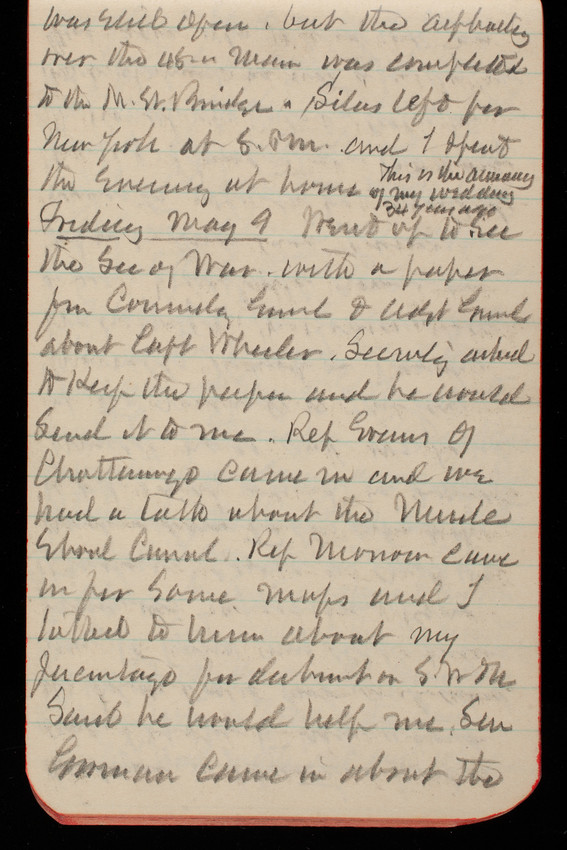 was still open. but the asphalting
over the 48 in Main was completed
to the M. St. Bridge. Silas left for
New York at 8. P.M. and I spent
the Evening at home This is the anniversary
of my wedding
34 years ago
Friday May 9 Went up to See
the Sec of War. with a paper
from Comisdy Genl & Adjt Genl
about Capt Wheeler. Secretary asked
to Keep the paper and he would
Send it to me. Rep Evans of
Chattanooga came in and we
had a talk about the Muscle
Shoal Canal. Rep Morrow came
in for Some maps and I
talked to him about my
for
Said he would help me. Sen
Gorman came in about the